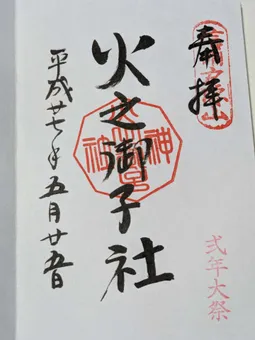 奉拝
火之御子社
平成廿七年五月廿五日
式年大祭